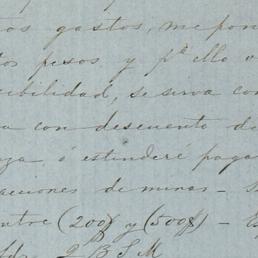 os gastos, me pon
os pesos y pª ello v
cibilidad, se sirva con
a con descuento de
za ó estenderé paga
acciones de minas -
ntre (200$ y (500$) - Es
Q B S M